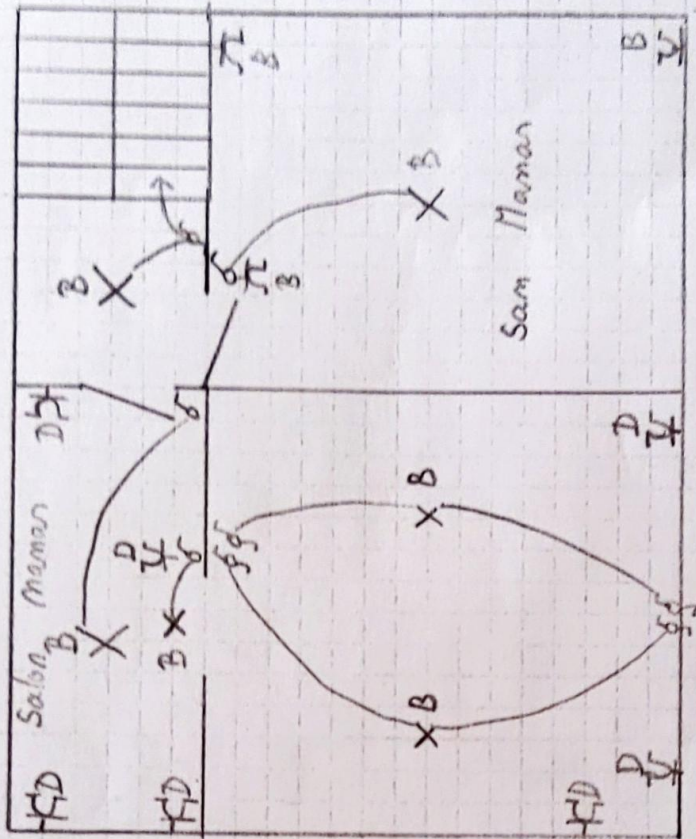 Salon maman
B
D
B
B
D
D
D
B
B
B
B
D
D
D
B
B
Sam Maman